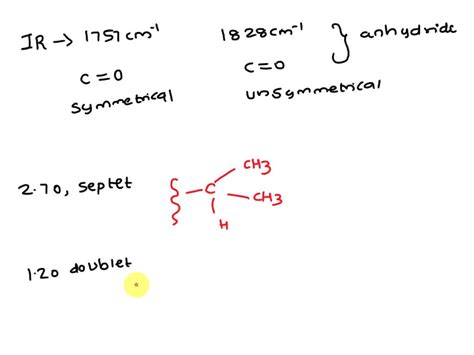 IR → 1757 cm⁻¹ 1828 cm⁻¹ } anhydride
C=O C=O
symmetrical unsymmetrical
CH3
2.70, septet -C-CH3
H
1.20 doublet